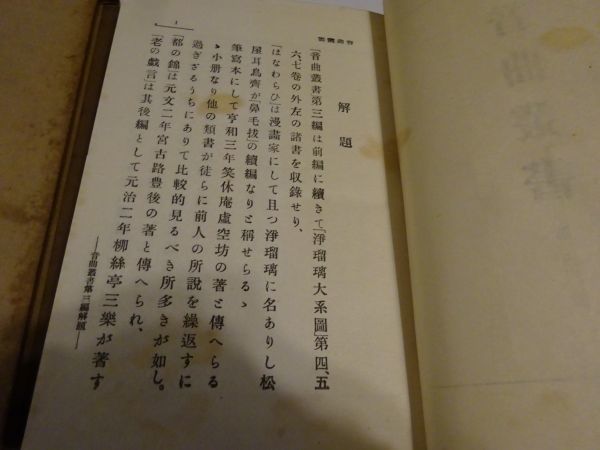 音曲叢書
解題
「音曲叢書第三編は前編に續きて「淨瑠璃大系圖」第四、五
六、七卷の外左の諸書を収錄せり、
「はなわらひ」は漫畵家にして且つ淨瑠璃に名ありし松
屋耳鳥齊が「鼻毛拔」の續編なりと稱せらるゝ
筆寫本にして亨和三年笑休庵虛空坊の著と傳へらる
ゝ小册なり他の類書が徒らに前人の所說を繰返すに
過ぎざるうちにありて比較的見るべき所多きが如し。
「都の錦」は元文二年宮古路豊後の著と傳へられ、
「老の戯言」は其後編として元治二年柳絲亭三樂が著す
―音曲叢書第三編解題―
1